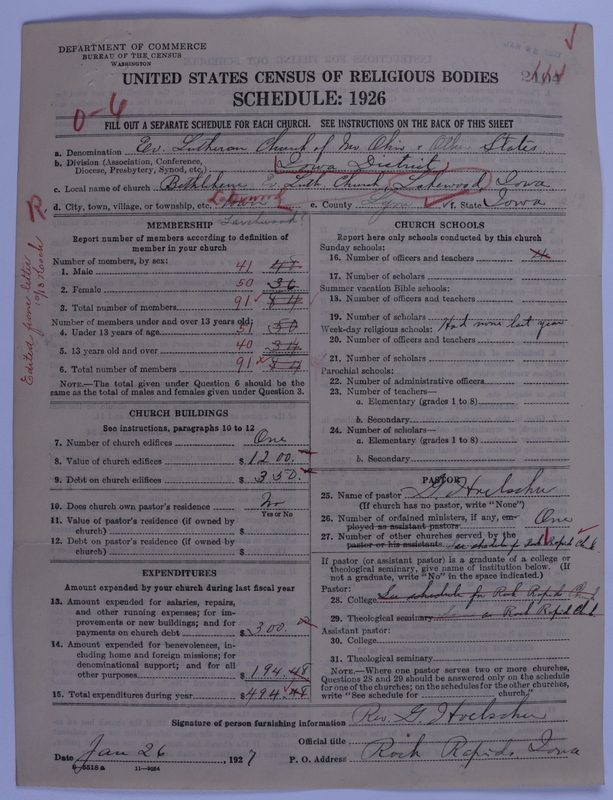 DEPARTMENT OF COMMERCE
BUREAU OF THE CENSUS
WASHINGTON
UNITED STATES CENSUS OF RELIGIOUS BODIES
SCHEDULE: 1926
0-6
FILL OUT A SEPARATE SCHEDULE FOR EACH CHURCH. SEE INSTRUCTIONS ON THE BACK OF THIS SHEET
a. Denomination Ev. Lutheran Church of Mo Ohio & Other States
b. Division (Association, Conference, Diocese, Presbytery, Synod, etc.) Iowa District
c. Local name of church Bethlehem Ev. Luth. Church, Lakewood, Iowa
d. City, town, village, or township, etc. Lakewood e. County Lyon f. State Iowa
Larchwood?
Edited from letter
MEMBERSHIP
Report number of members according to definition of
member in your church
Number of members, by sex:
1. Male 41
2. Female 50 36
3. Total number of members 91 84
Number of members under and over 13 years old:
4. Under 13 years of age 51 50
5. 13 years old and over 40 34
6. Total number of members 91 84
NOTE.—The total given under Question 6 should be the
same as the total of males and females given under Question 3.
CHURCH BUILDINGS
See instructions, paragraphs 10 to 12
7. Number of church edifices One
8. Value of church edifices $ 1200.
9. Debt on church edifices $ 350.
10. Does church own pastor's residence No
Yes or No
11. Value of pastor's residence (if owned by
church) $
12. Debt on pastor's residence (if owned by
church) $
EXPENDITURES
Amount expended by your church during last fiscal year
13. Amount expended for salaries, repairs,
and other running expenses; for im-
provements or new buildings; and for
payments on church debt $ 300.
14. Amount expended for benevolences, in-
cluding home and foreign missions; for
denominational support; and for all
other purposes $ 194 48
15. Total expenditures during year $ 494 48
CHURCH SCHOOLS
Report here only schools conducted by this church
Sunday schools:
16. Number of officers and teachers
17. Number of scholars
Summer vacation Bible schools:
18. Number of officers and teachers
19. Number of scholars Had none last year
Week-day religious schools:
20. Number of officers and teachers
21. Number of scholars
Parochial schools:
22. Number of administrative officers
23. Number of teachers—
a. Elementary (grades 1 to 8)
b. Secondary
24. Number of scholars—
a. Elementary (grades 1 to 8)
b. Secondary
PASTOR
25. Name of pastor G. Hoelscher
(If church has no pastor, write "None")
26. Number of ordained ministers, if any, em-
ployed as assistant pastors One
27. Number of other churches served by the
pastor or his assistants See schedule for Rock Rapids Ch
If pastor (or assistant pastor) is a graduate of a college or
theological seminary, give name of institution below. (If
not a graduate, write "No" in the space indicated.)
Pastor:
28. College See schedule for Rock Rapids
29. Theological seminary Rock Rapids Ch
Assistant pastor:
30. College
31. Theological seminary
NOTE.—Where one pastor serves two or more churches,
Questions 28 and 29 should be answered only on the schedule
for one of the churches; on the schedules for the other churches,
write "See schedule for church."
Signature of person furnishing information Rev. G. Hoelscher
Official title
Date Jan 26, 1927 P. O. Address Rock Rapids Iowa
8-5518a 11-9024